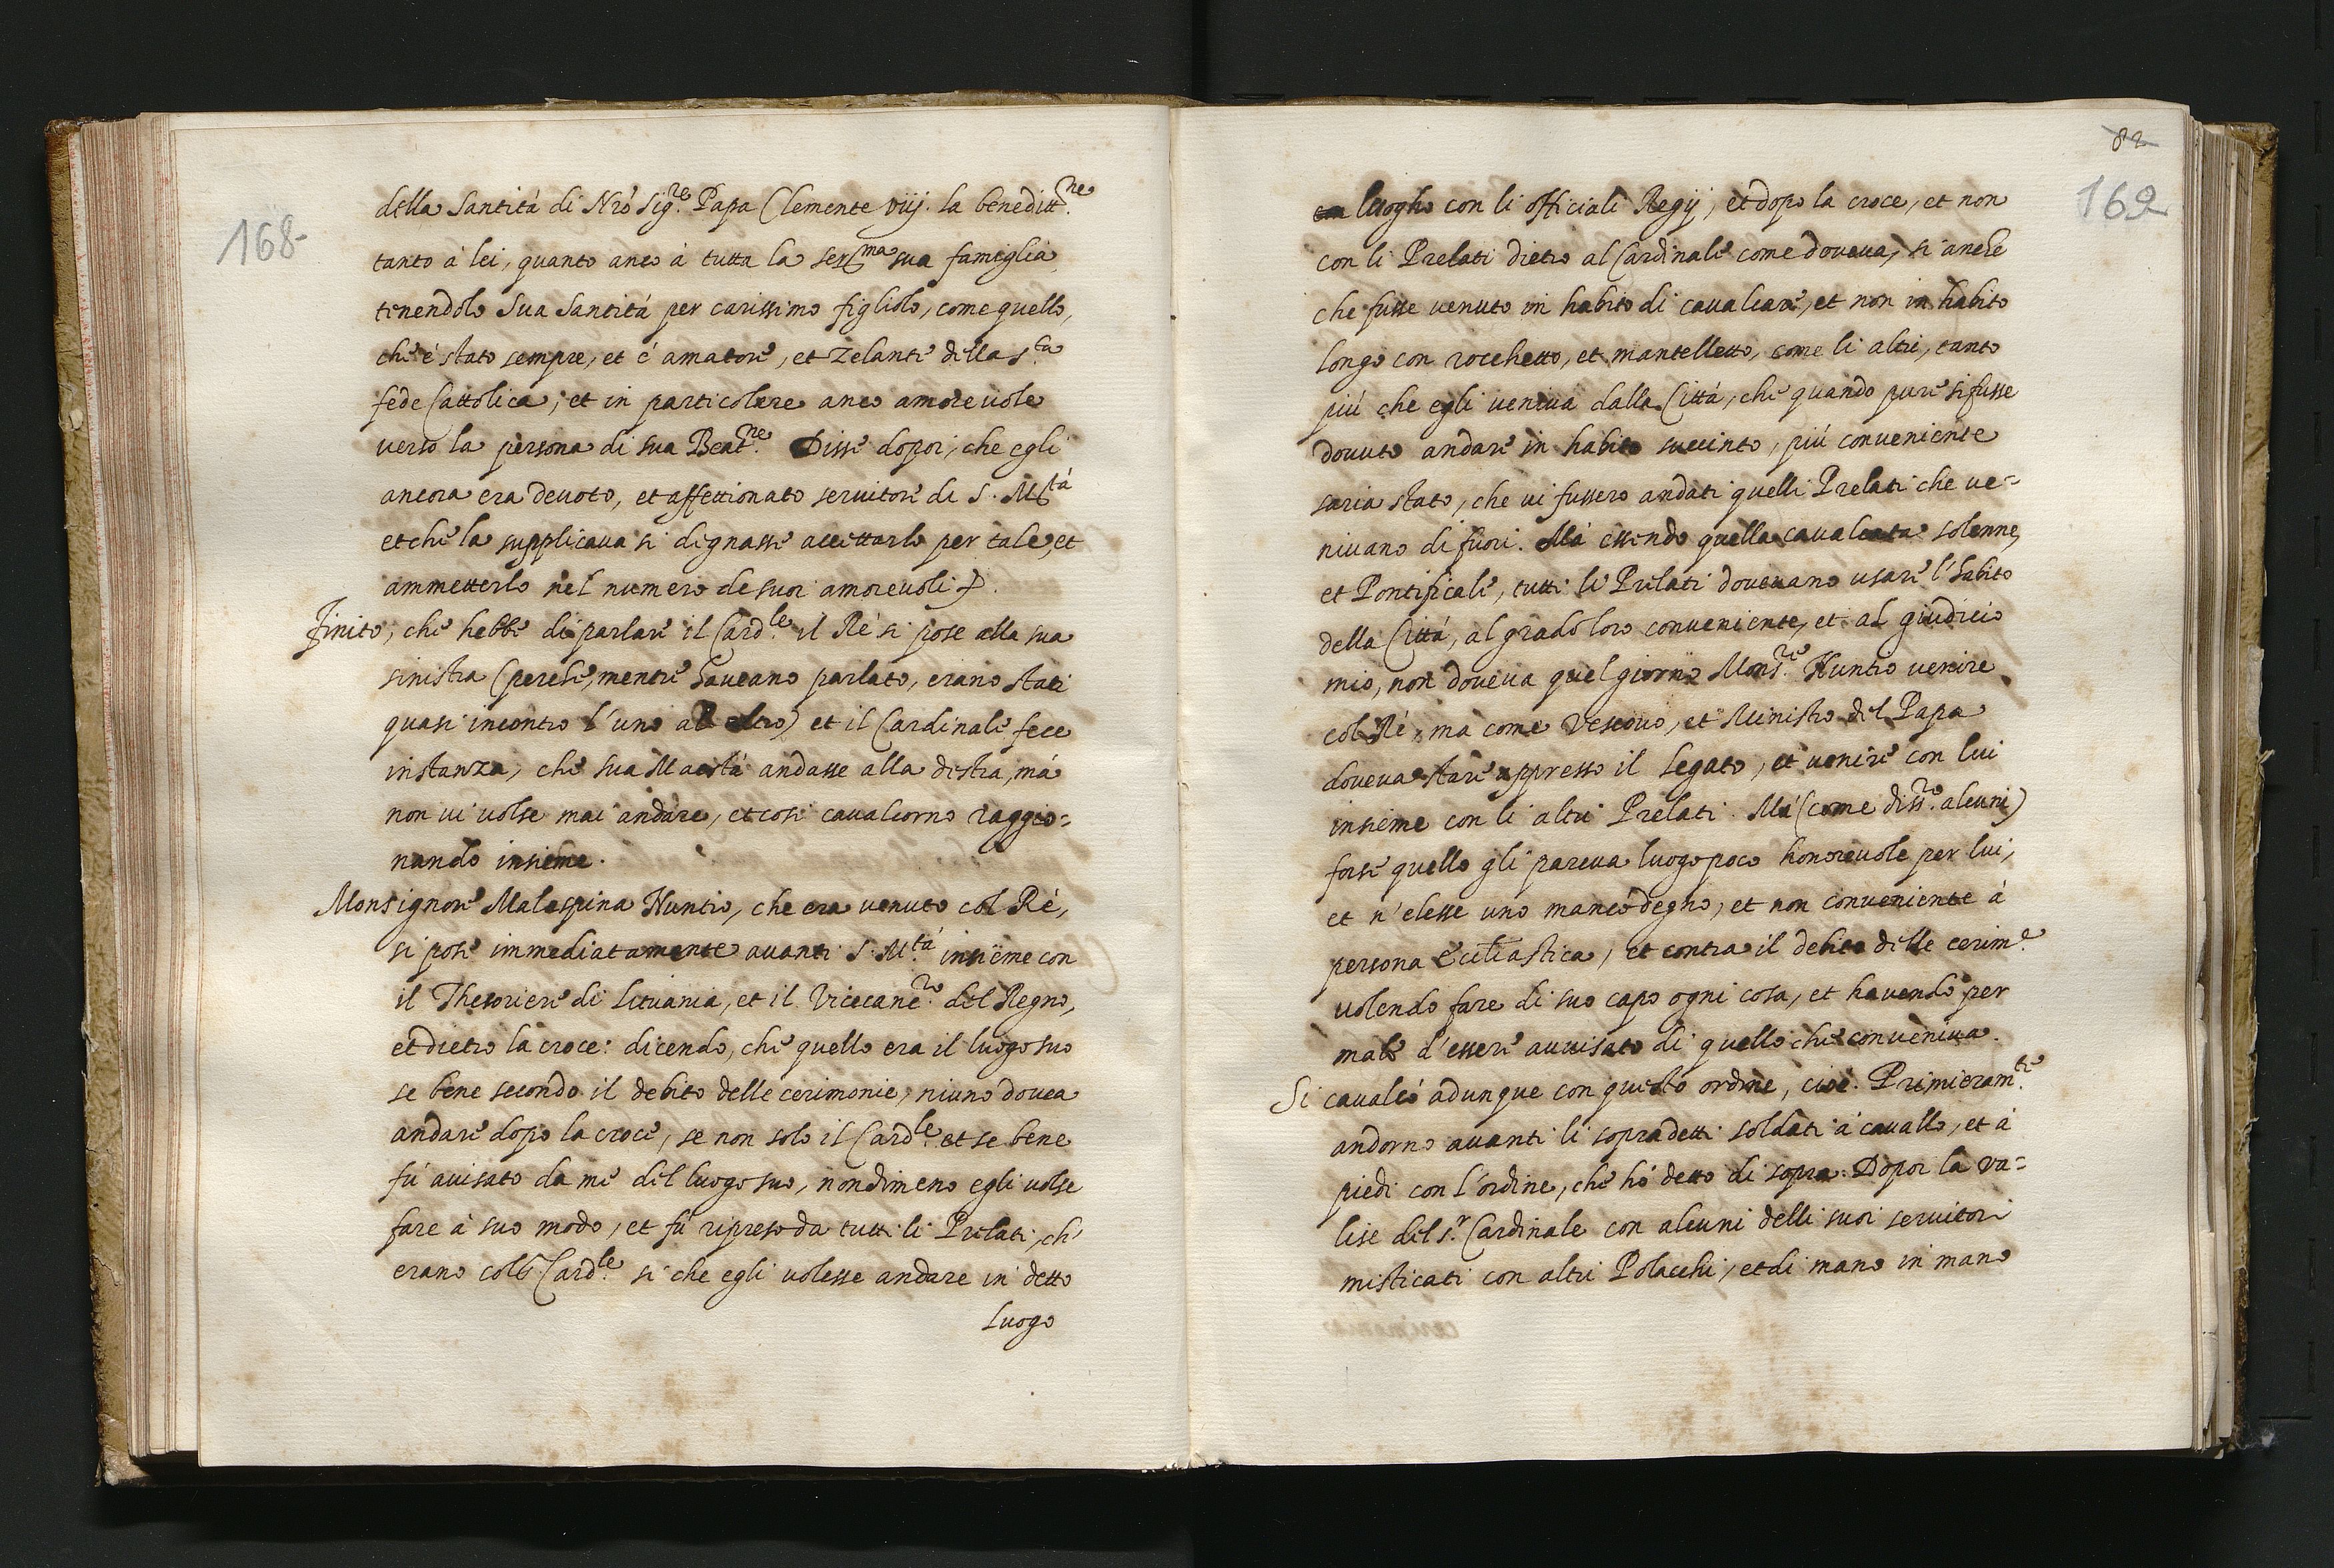 168
della Santità di Nrõ Sig.re Papa Clemente viij. la beneditt.ne
tanto à lei, quanto anco à tutta la ser.ma sua famiglia
tenendolo Sua Santità per carissimo figliolo, come quello,
che è stato sempre, et è amatore, et zelante della s.ta
fede Cattolica, et in particolare anco amorevole
verso la persona di sua Beat.ne Disse dopoi, che egli
ancora era devoto, et affettionato servitore di S. M.tà
et che la supplicava si dignasse accettarlo per tale, et
ammetterlo nel numero de suoi amorevoli
Finito, che hebbe di parlare il Card.le il Rè si pose alla sua
sinistra (perche, mentre haveano parlato, erano stati
quasi incontro l'uno al altro) et il Cardinale fece
instanza, che sua Maestà andasse alla destra, mà
non vi volse mai andare, et cosi cavalcorno raggio=
nando insieme.
Monsignore Malaspina Nuntio, che era venuto col Rè,
si pose immediatamente avanti S. M.tà insieme con
il Thesoriere di Lituania, et il Vicecanc.re del Regno,
et dietro la croce: dicendo, che quello era il luogo suo
se bene secondo il debito delle cerimonie, niuno dovea
andare dopo la croce, se non solo il Card.le et se bene
fù avisato da me del luogo suo, nondimeno egli volse
fare à suo modo, et fù ripreso da tutti li Prelati, ch'
erano col Card.le si che egli volesse andare in detto
Luogo
82
169
luogho con li officiali Regij, et dopo la croce, et non
con li Prelati dietro al Cardinale come doveva, si anche
che fusse venuto in habito di cavaliere, et non in habito
longo con rocchetto, et mantelletto, come li altri, tanto
più che egli veniva dalla Città, che quando pure si fusse
dovuto andare in habito succinto, più conveniente
saria stato, che vi fussero andati quelli Prelati che ve=
nivano di fuori. Mà essendo quella cavalcata solenne,
et Pontificale, tutti li Prelati dovevano usare l'habito
della Città, al grado loro conveniente, et al giudicio
mio, non doveva quel giorno Mons.re Nuntio venire
col Rè, ma come Vescovo, et Ministro del Papa
doveva stare appresso il Legato, et venire con lui
insieme con li altri Prelati. Mà (come diss.ro alcuni)
forse quello gli pareva luogo poco honorevole per lui,
et n'elesse uno manco degno, et non conveniente à
persona Eccl̃iastica, et contra il debito delle cerim.e
volendo fare di suo capo ogni cosa, et havendo per
male d'essere avvisato di quello che conveniva.
Si cavalcò adunque con questo ordine, cioè. Primieram.te
andorno avanti li sopradetti soldati à cavallo, et à
piedi con l'ordine, che hò detto di sopra. Dopoi la va=
lise del S.r Cardinale con alcuni delli suoi servitori
misticati con altri Polacchi, et di mano in mano